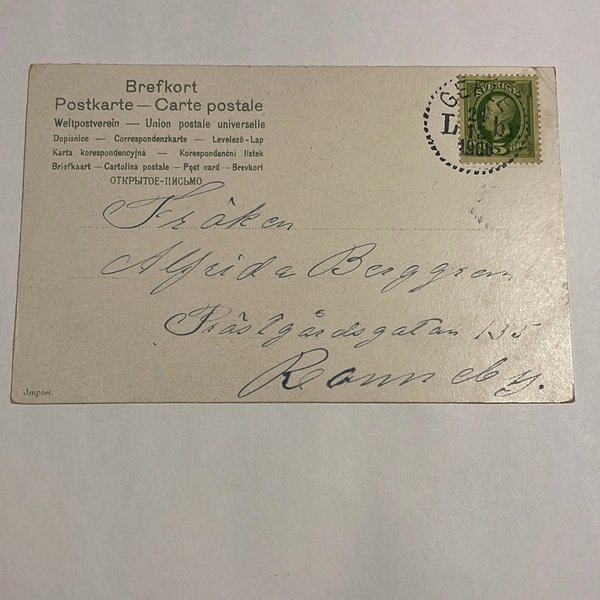 Brefkort
Postkarte — Carte postale
Weltpostverein — Union postale universelle
Dopisnice — Correspondenzkarte — Levelező-Lap
Karta korespondencyjna — Korespondenční lístek
Briefkaart — Cartolina postale — Post card — Brevkort
ОТКРЫТОЕ-ПИСЬМО
SVERIGE
5
Fröken
Alfrida Berggren
Prästgårdsgatan 135
Ronneby.
Import.